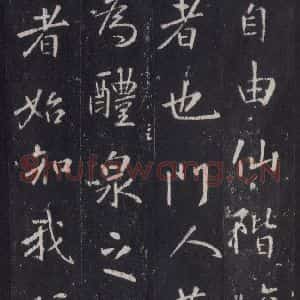 自由仙階
者也門人
為醴泉之
者始知我
Shufawang.CN